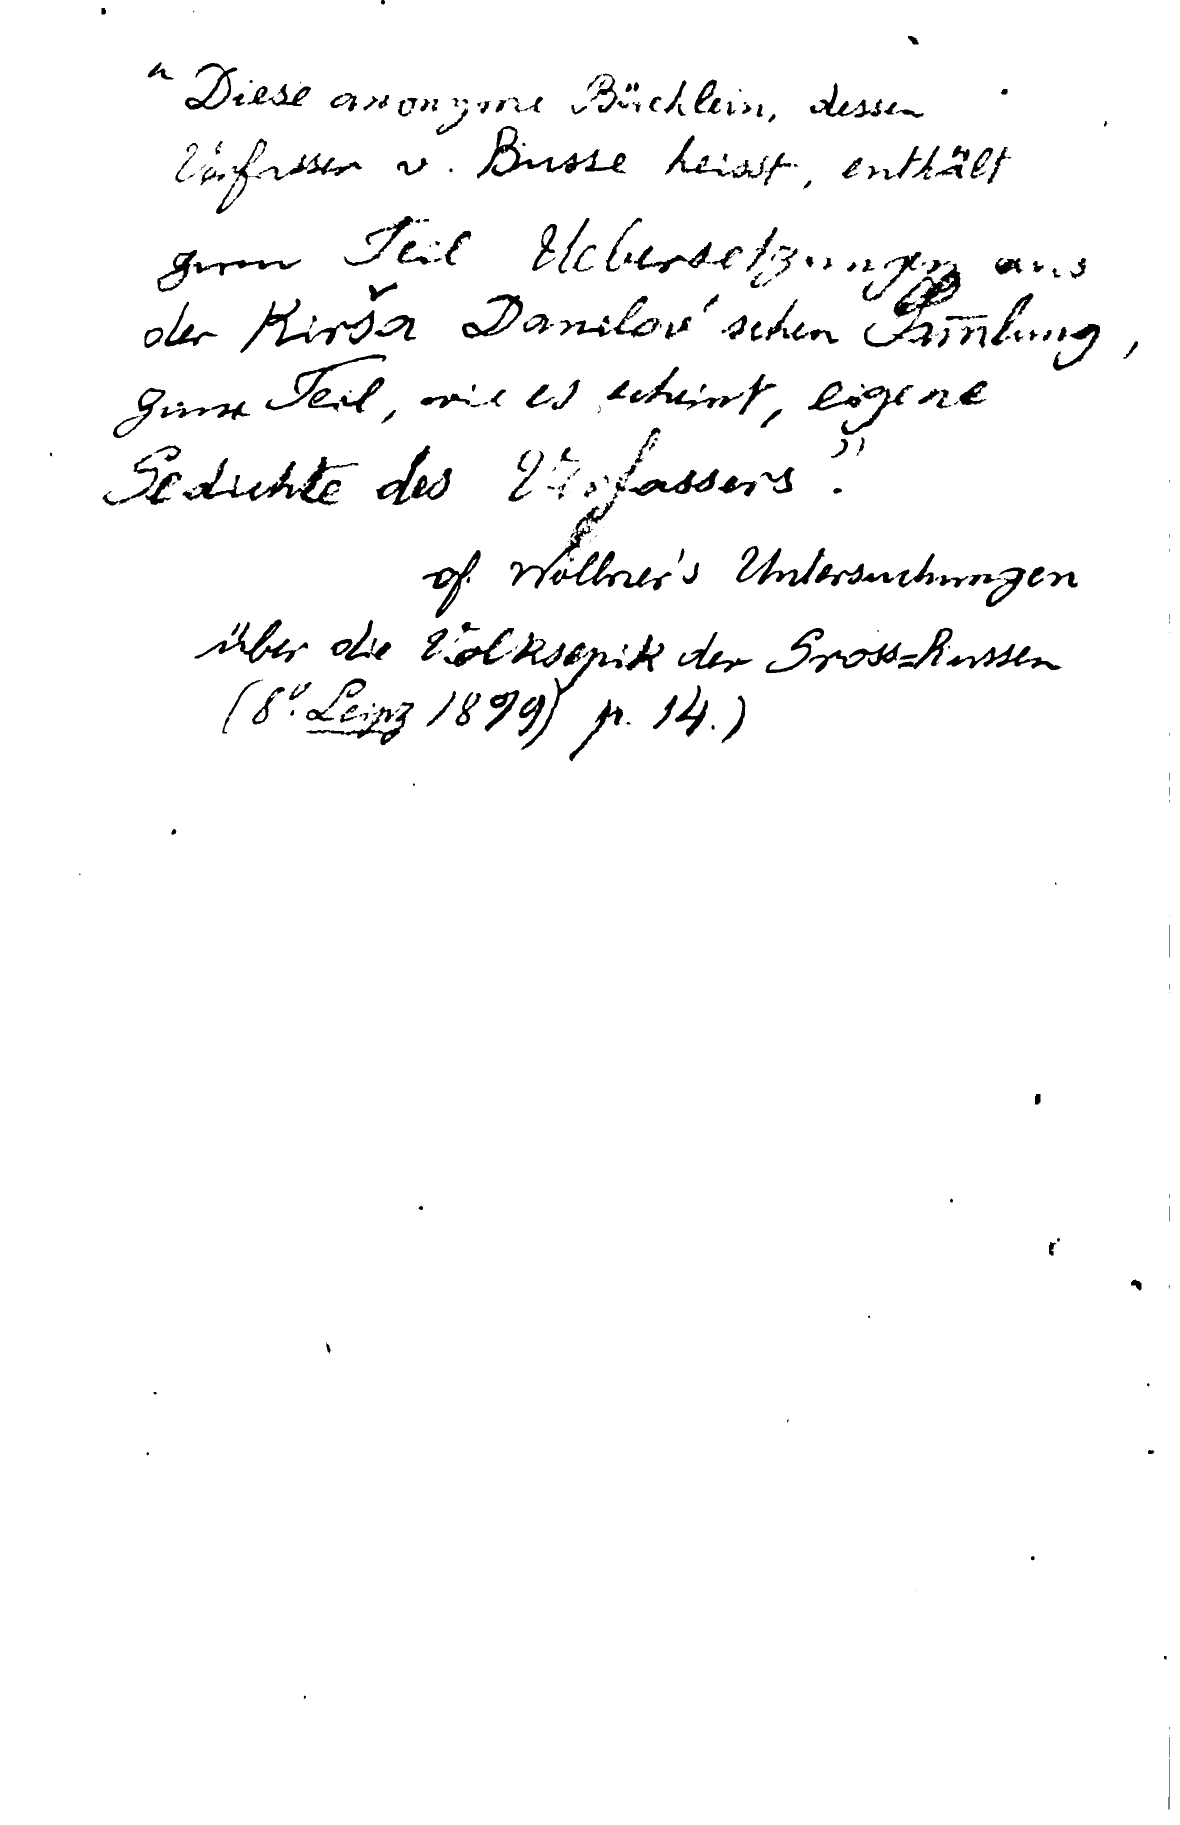 "Diese anonyme Büchlein, dessen
Verfasser v. Busse heisst, enthält
zum Teil Uebersetzungen aus
der Kirša Danilov'schen Sam̅lung,
zum Teil, wie es scheint, eigene
Gedichte des Verfassers".
cf. Wollner's Untersuchungen
über die Volksepik der Gross=Russen
(8º. Leipz 1899) p. 14.)